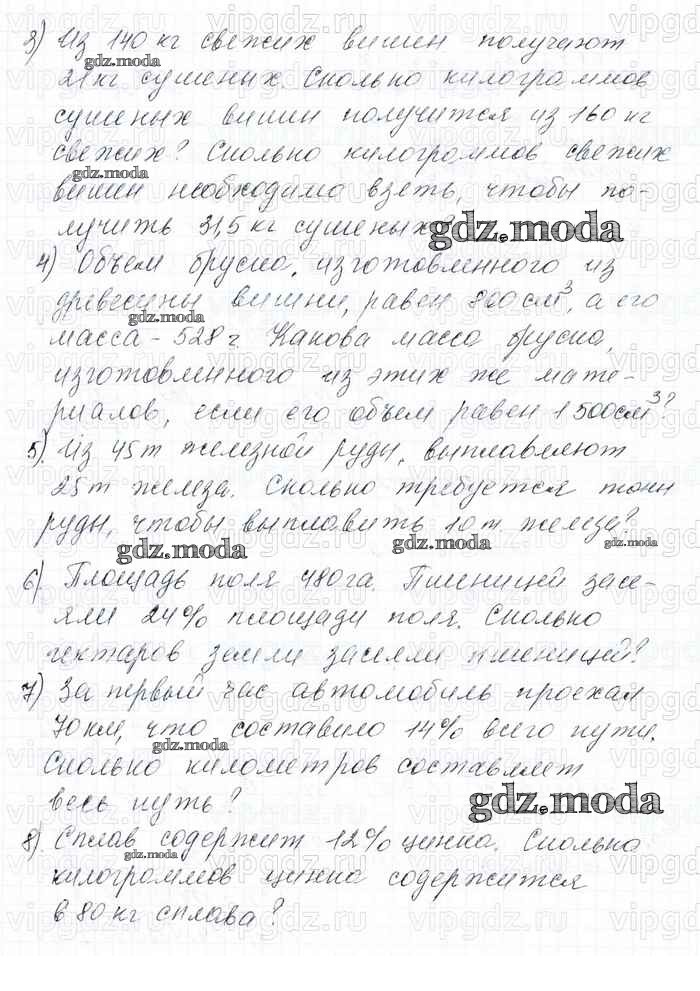 3) Из 140 кг свежих вишен получают
21 кг сушеных. Сколько килограммов
сушеных вишен получится из 160 кг
свежих? Сколько килограммов свежих
вишен необходимо взеть, чтобы по-
лучить 31,5 кг сушеных?
4) Объем бруска, изготовленного из
древесины вишни, равен 800 см³, а его
масса - 528 г Какова масса бруска,
изготовленного из этих же мате-
риалов, если его объем равен 1500 см³?
5) Из 45 т железной руды, выплавляют
25 т железа. Сколько требуется тонн
руды, чтобы выплавить 10 т железа?
6) Площадь поля 480 га. Пшеницей засе-
яли 24% площади поля. Сколько
гектаров земли засеяли пшеницей?
7) За первый час автомобиль проехал
70 км, что составило 14% всего пути.
Сколько километров составляет
весь путь?
8) Сплав содержит 12% цинка. Сколько
килограммов цинка содержится
в 80 кг сплава?
gdz.moda
gdz.moda
gdz.moda
gdz.moda
gdz.moda
gdz.moda
gdz.moda
gdz.moda
gdz.moda
gdz.moda
vipgdz.ru